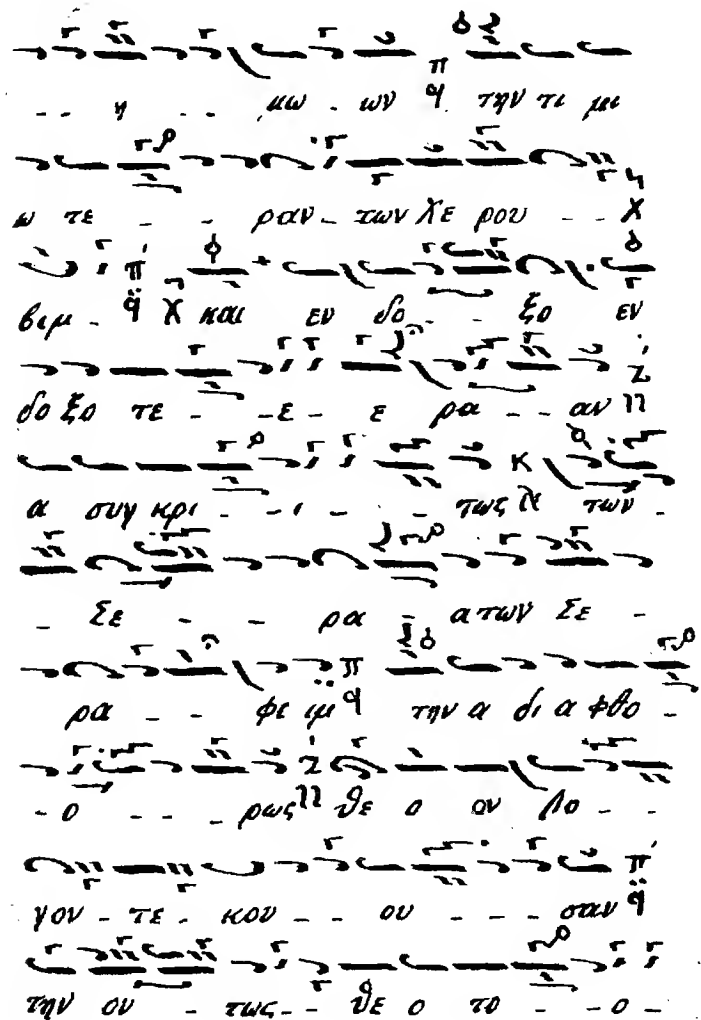 - - η - - μω - ων την τι μι
ω τε - - ραν - των Χε ρου - - -
βιμ - και εν δο - - ξο εν
δο ξο τε - - ε - ε ρα - - αν
α συγ κρι - - ι - - - τως των -
- Σε - - ρα - α των Σε -
ρα - - φι ιμ την α δι α φθο -
- ο - - - ρως θε ο ον λο - -
γον - τε - κου - - ου - - - σαν
την ου - τως - - θε ο το - - ο -